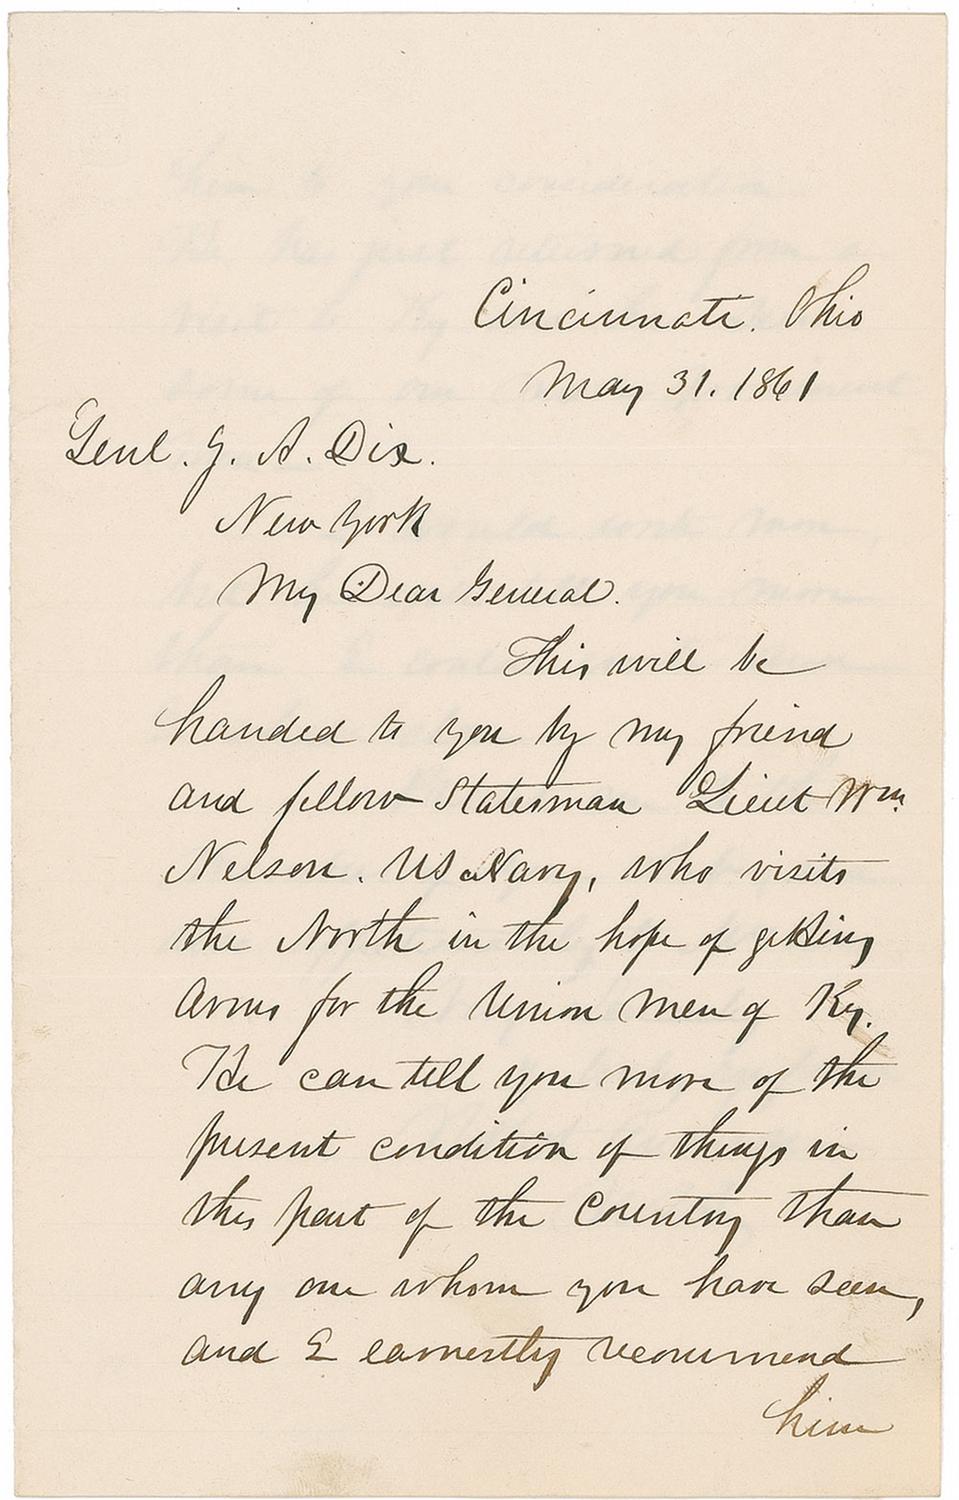 Cincinnati. Ohio
May 31. 1861
Genl. J. A. Dix.
New York
My Dear General.
This will be
handed to you by my friend
and fellow Statesman Lieut Wm.
Nelson. US Navy, who visits
the North in the hope of getting
arms for the Union men of Ky.
He can tell you more of the
present condition of things in
this part of the Country than
any one whom you have seen,
and I earnestly recommend
him